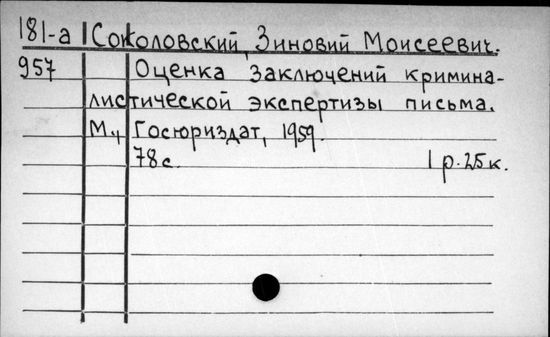 181-а Соколовский, Зиновий Моисеевич.
957 Оценка заключений кримина-
листической экспертизы письма.
М., Госюриздат, 1959.
78 с. 1 р. 25 к.